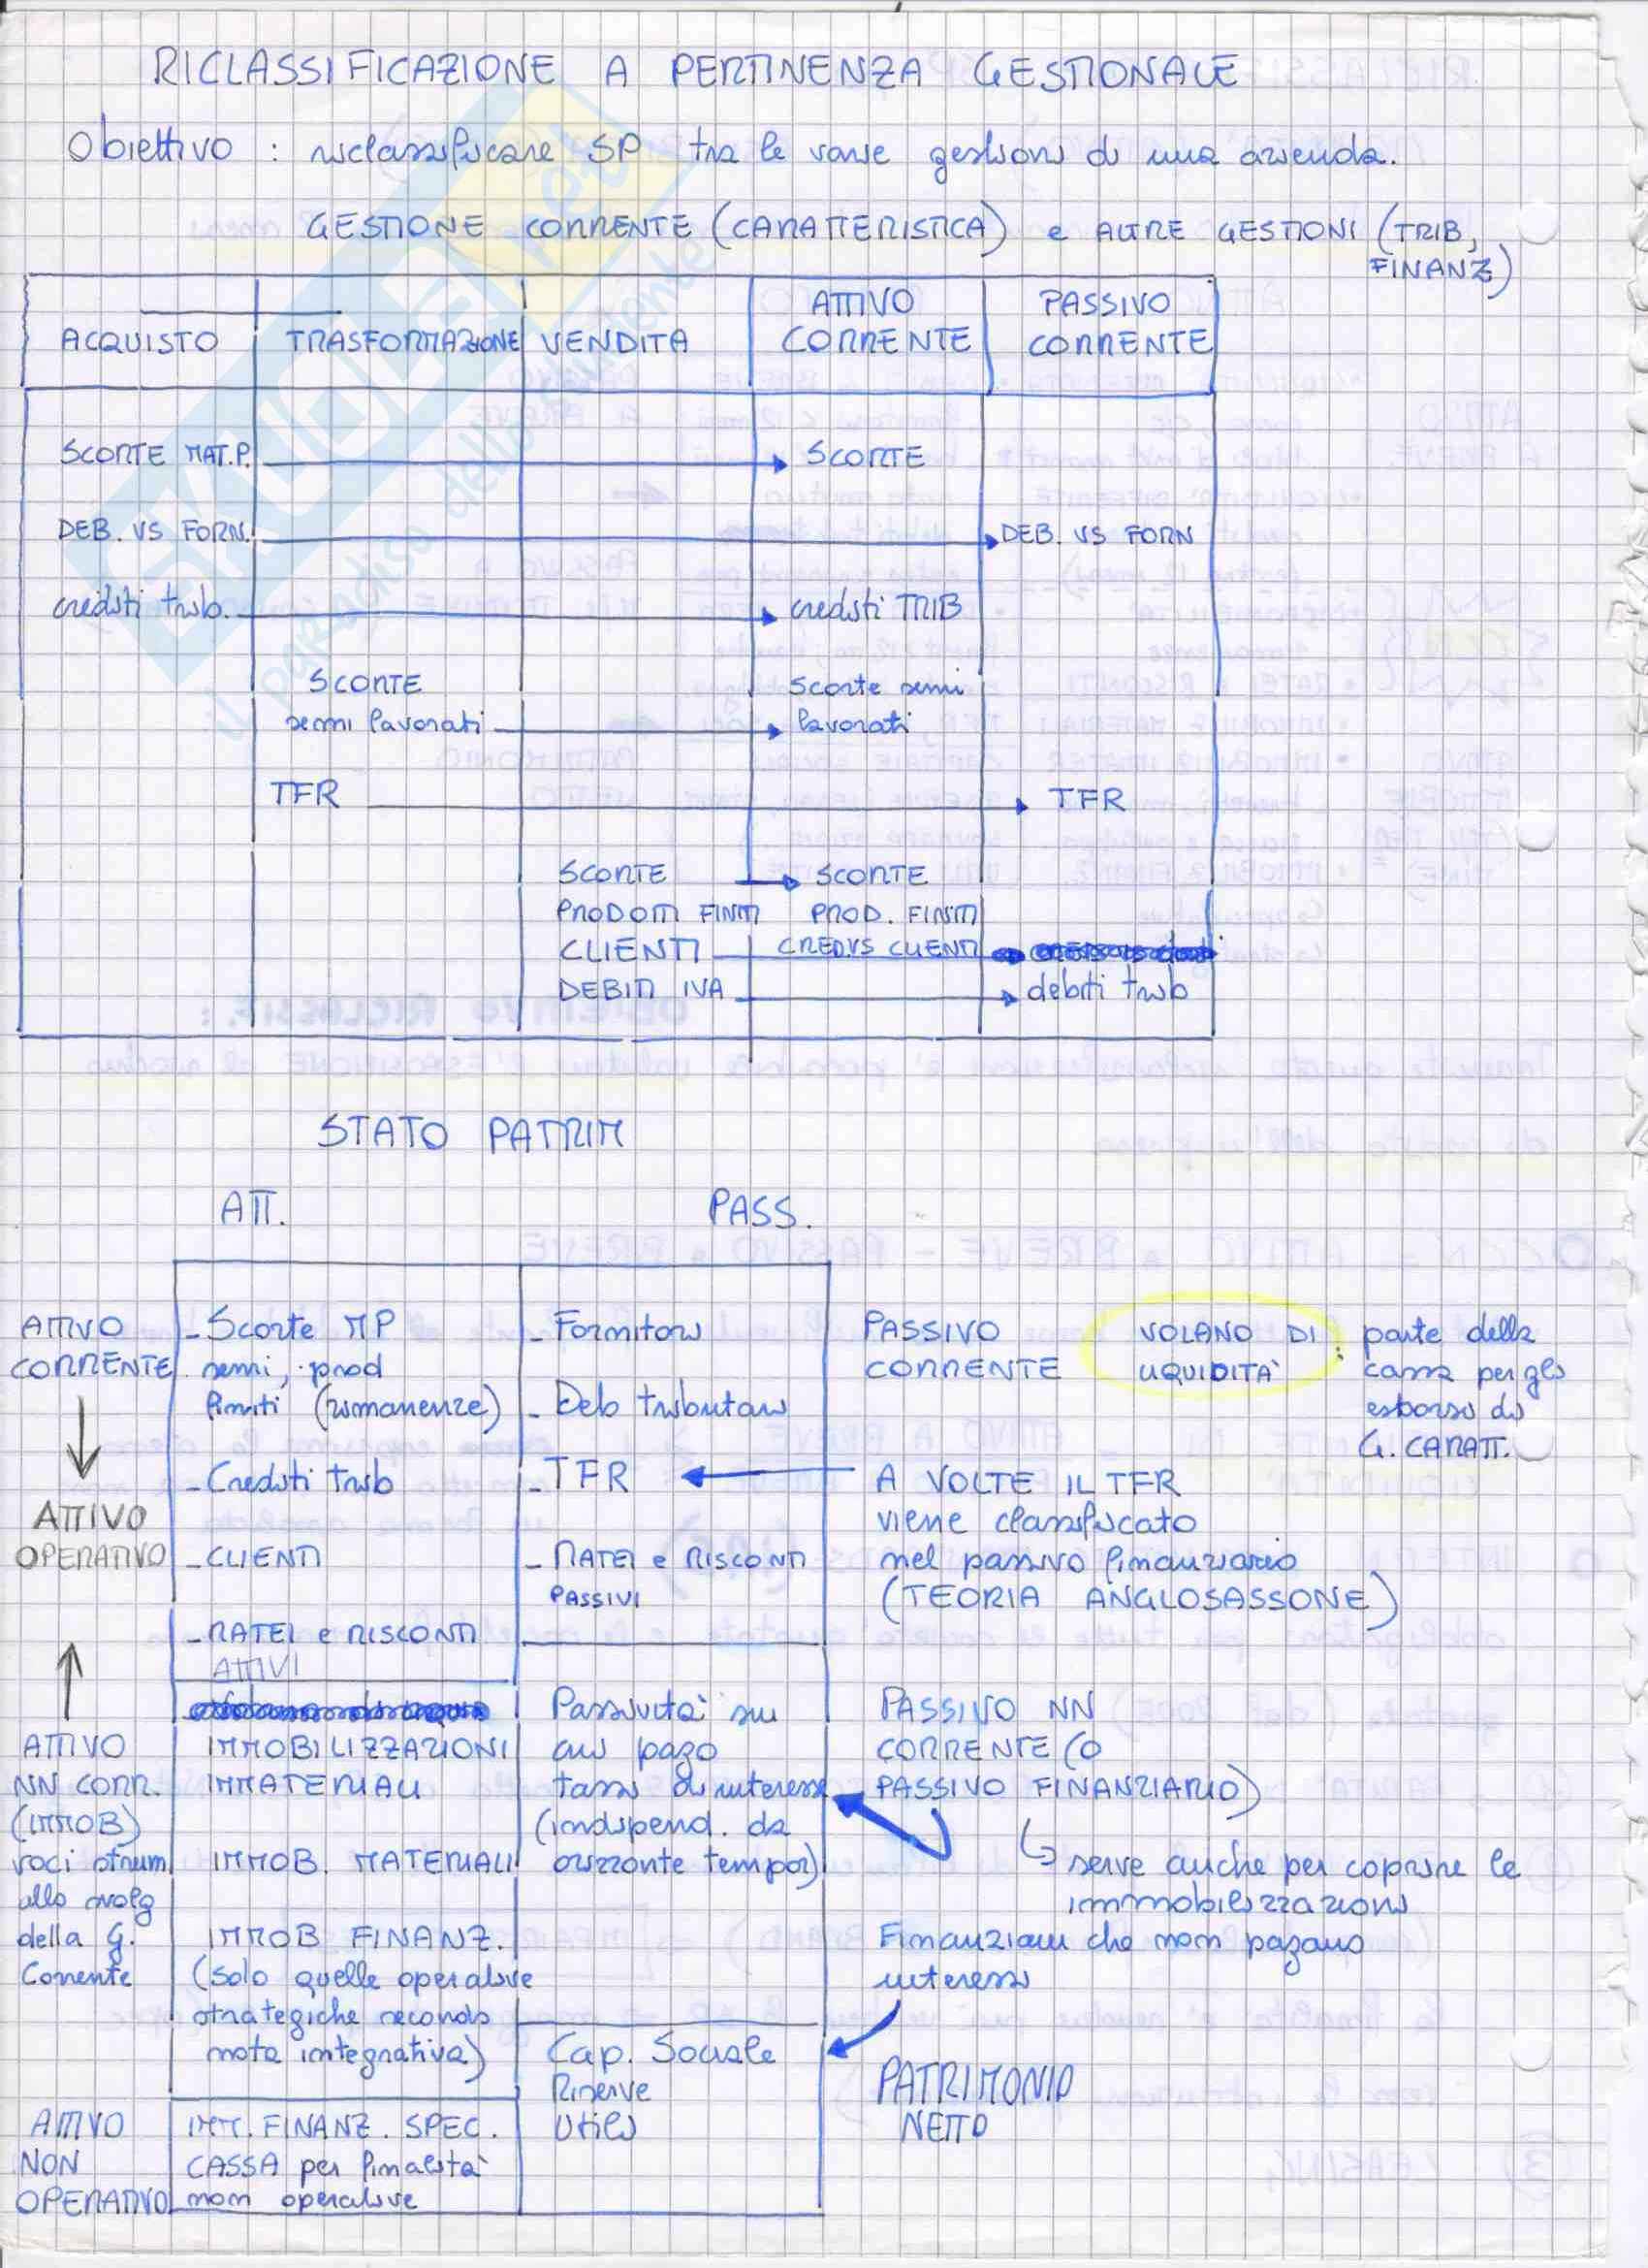 RICLASSIFICAZIONE A PERTINENZA GESTIONALE
Obiettivo : riclassificare SP tra le varie gestioni di una azienda.
GESTIONE CORRENTE (CARATTERISTICA) e ALTRE GESTIONI (TRIB, FINANZ)
ACQUISTO TRASFORMAZIONE VENDITA ATTIVO CORRENTE PASSIVO CORRENTE
SCORTE MAT.P. SCORTE
DEB. VS FORN. DEB. VS FORN
crediti trib. crediti TRIB
SCORTE semi lavorati Scorte semi lavorati
TFR TFR
SCORTE PRODOTTI FINITI SCORTE PROD. FINITI
CLIENTI CRED.VS CLIENTI
DEBITI IVA debiti trib
STATO PATRIM
ATT. PASS.
ATTIVO CORRENTE
ATTIVO OPERATIVO
- Scorte MP
semi, prod
finiti (rimanenze)
- Crediti trib
- CLIENTI
- RATEI e RISCONTI
ATTIVI
- Fornitori
- Deb tributari
- TFR
- RATEI e RISCONTI
PASSIVI
PASSIVO
CORRENTE
VOLANO DI
LIQUIDITÀ :
parte della
cassa per gli
esborsi di
G. CARATT.
A VOLTE IL TFR
viene classificato
nel passivo finanziario
(TEORIA ANGLOSASSONE)
ATTIVO
NN CORR.
(IMMOB)
voci strum
allo svolg
della G.
Corrente
IMMOBILIZZAZIONI
IMMATERIALI
IMMOB. MATERIALI
IMMOB FINANZ.
(solo quelle operative
strategiche secondo
nota integrativa)
Passività su
cui pago
tassi di interesse
(indipend. da
orizzonte tempor)
PASSIVO NN
CORRENTE (O
PASSIVO FINANZIARIO)
serve anche per coprire le
immobilizzazioni
Finanziam che non pagano
interessi
Cap. Sociale
Riserve
Utili
PATRIMONIO
NETTO
ATTIVO
NON
OPERATIVO
IMM. FINANZ. SPEC.
CASSA per finalità
non operative
SKUOLA.net
il paradiso dello studente